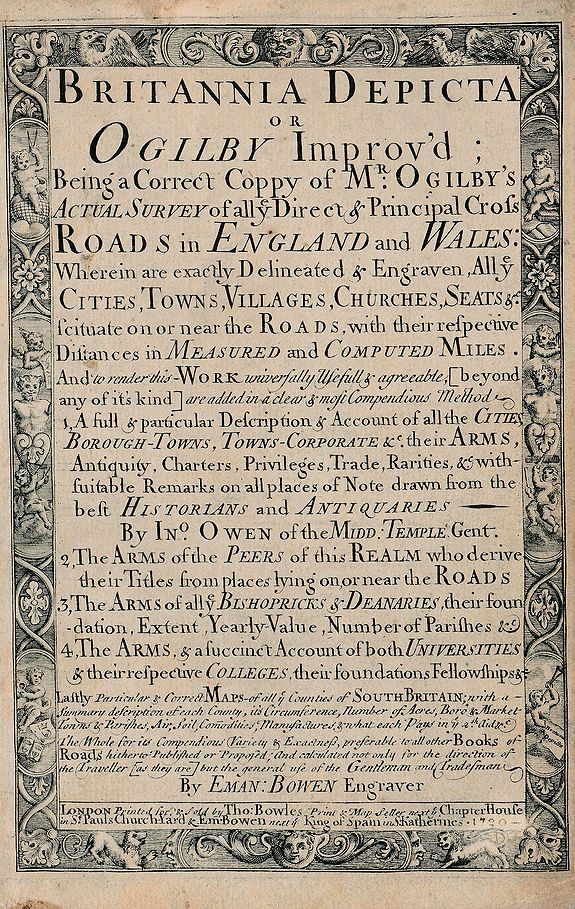 BRITANNIA DEPICTA
OR
OGILBY Improv'd ;
Being a Correct Coppy of Mr. OGILBY'S
ACTUAL SURVEY of all ye Direct & Principal Cross
ROADS in ENGLAND and WALES:
Wherein are exactly Delineated & Engraven, All ye
CITIES, TOWNS, VILLAGES, CHURCHES, SEATS &c.
scituate on or near the ROADS, with their respective
Distances in MEASURED and COMPUTED MILES .
And to render this WORK universally Usefull & agreeable, [beyond
any of it's kind] are added in a clear & most Compendious Method
1, A full & particular Description & Account of all the CITIES,
BOROUGH-TOWNS, TOWNS-CORPORATE &c. their ARMS,
Antiquity, Charters, Privileges, Trade, Rarities, &c with
suitable Remarks on all places of Note drawn from the
best HISTORIANS and ANTIQUARIES
By Ino. OWEN of the MIDD. TEMPLE Gent.
2, The ARMS of the PEERS of this REALM who derive
their Titles from places lying on, or near the ROADS
3, The ARMS of all ye BISHOPRICKS & DEANARIES, their foun
-dation, Extent, Yearly Value, Number of Parishes &c
4, The ARMS, & a succinct Account of both UNIVERSITIES
& their respective COLLEGES, their foundations Fellowships &c
Lastly Particular & Correct MAPS of all ye Counties of SOUTH BRITAIN; with a
Summary description of each County, its Circumference, Number of Acres, Boro' & Market
Towns & Parishes, Air, Soil, Comodities, Manufactures, & what each Pays in ye
The Whole for its Compendious Variety & Exactness, preferable to all other Books of
Roads hitherto Published or Proposed; And calculated not only for the direction of
the Traveller [as they are] but the general use of the Gentleman and Tradesman
By EMAN: BOWEN Engraver
LONDON Printed for, & Sold by Tho: Bowles Print & Map Seller next ye Chapter House
in St. Pauls Church-Yard & Em: Bowen next ye King of Spain in St. Katherines.